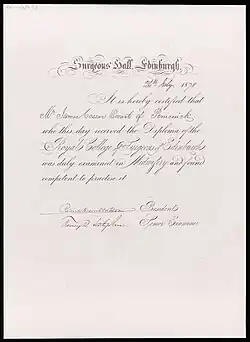 Surgeons Hall, Edinburgh,
1878
It is hereby certified that
Mr. James Cossar Ewart of Penicuick
who this day received the Diploma of the
Royal College of Surgeons of Edinburgh
was duly examined in Midwifery and found
competent to practise it
President